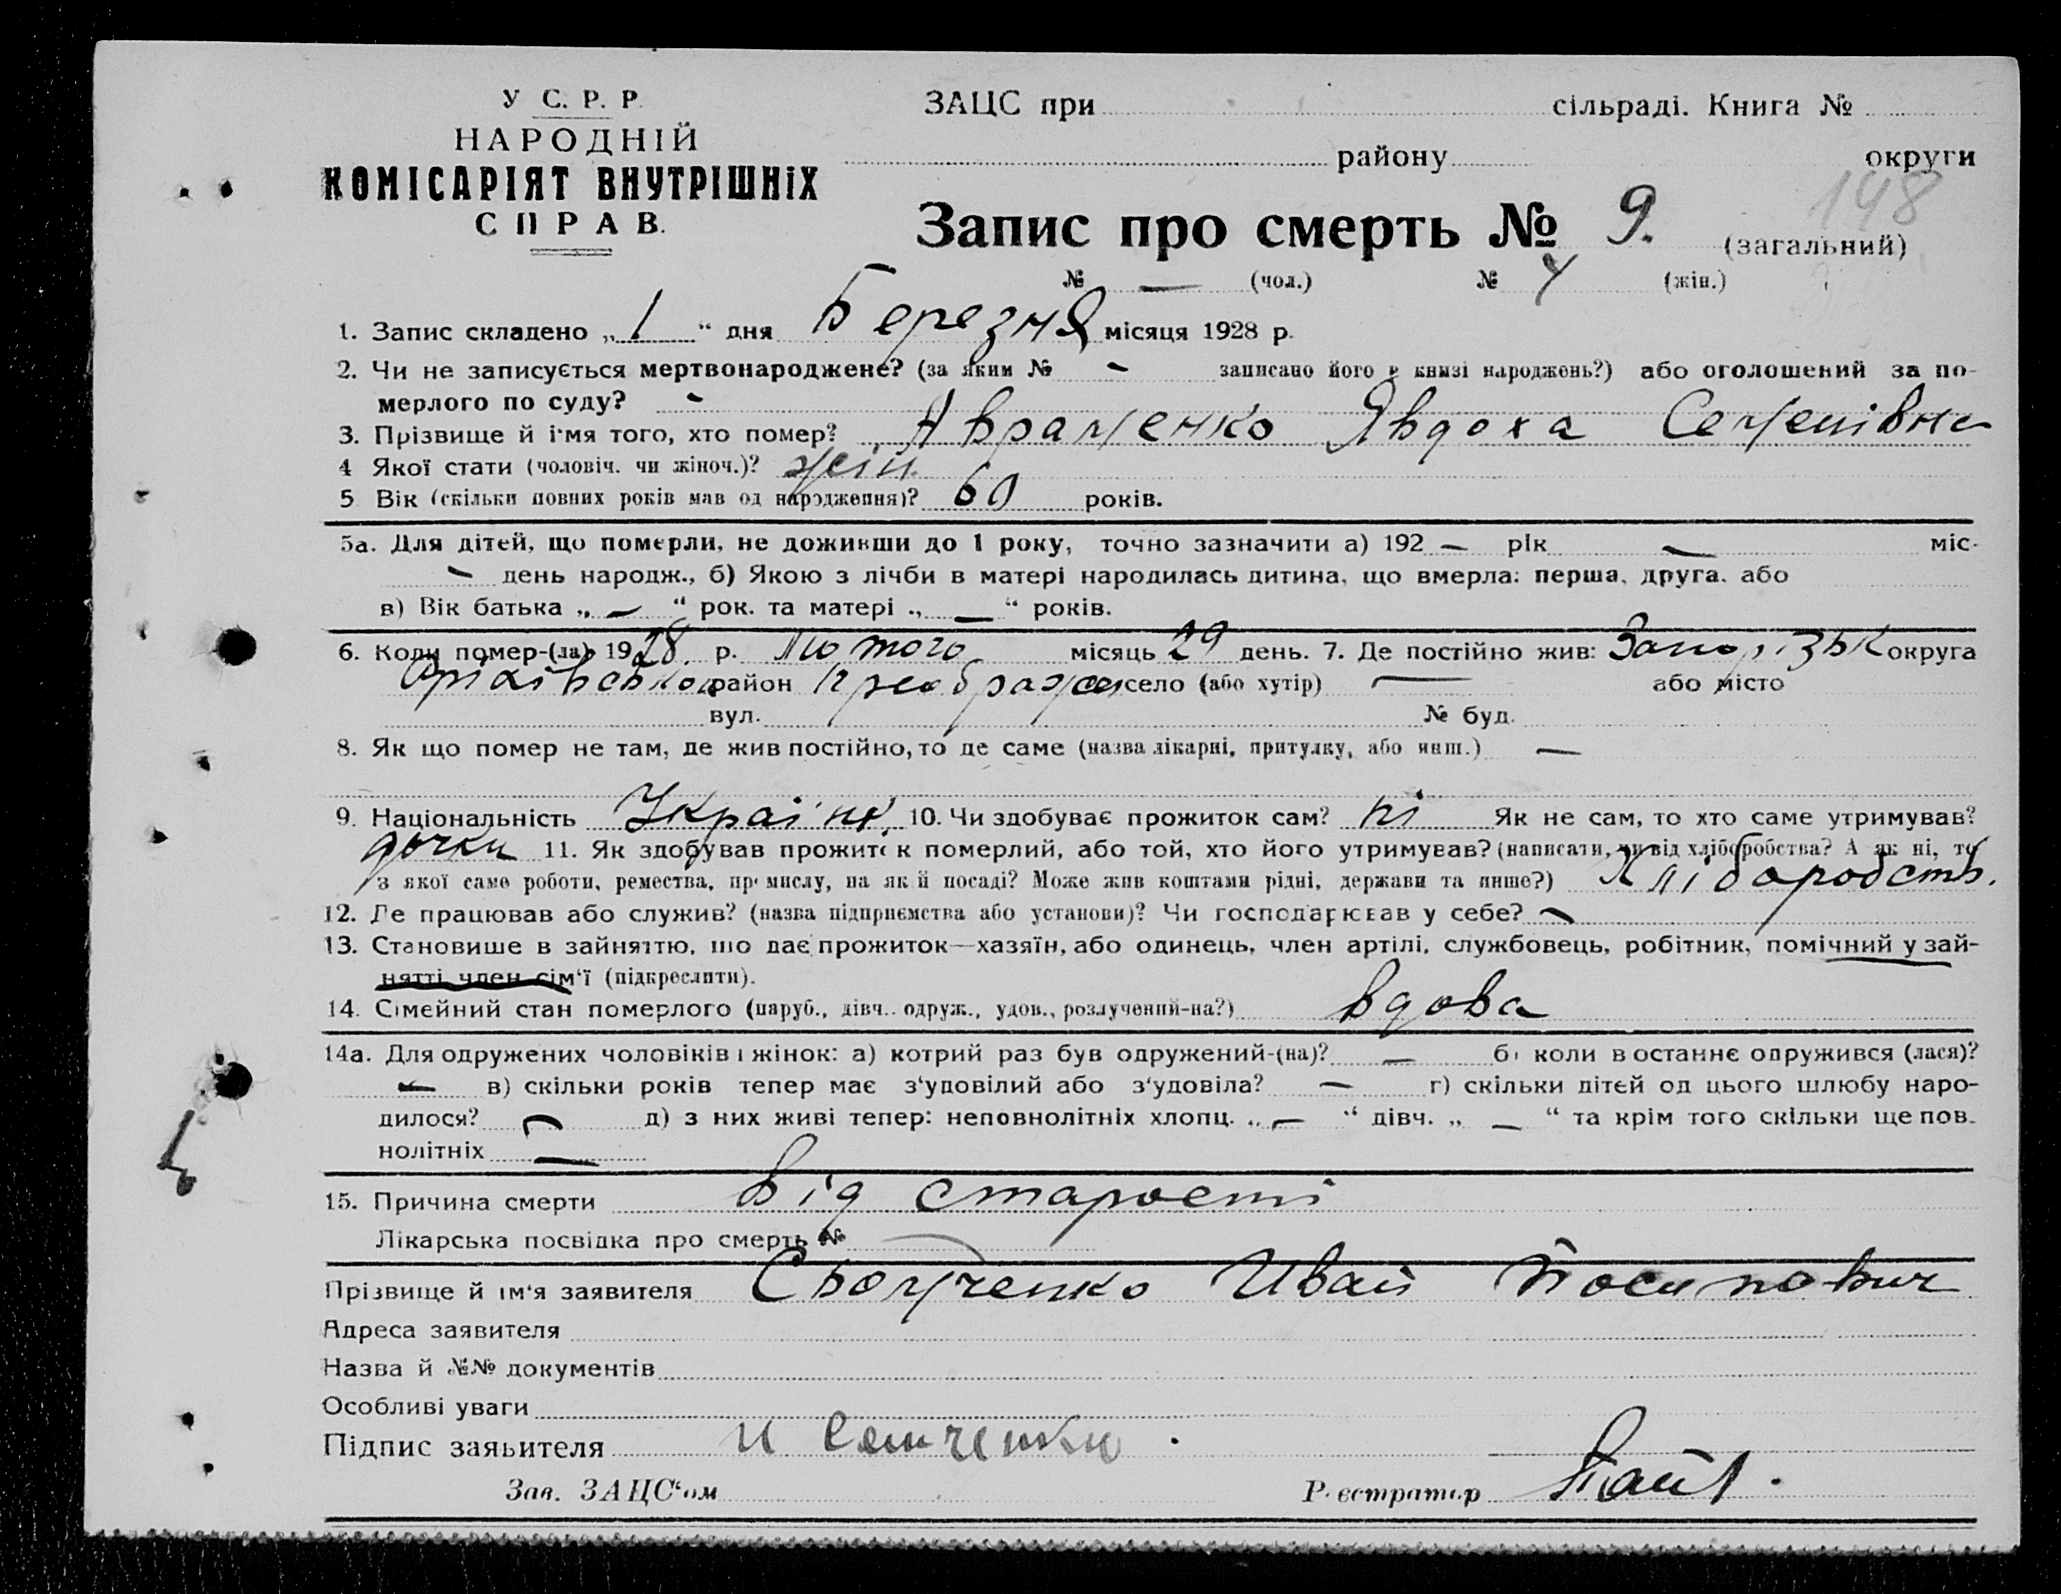 У С. Р. Р.
НАРОДНІЙ
КОМІСАРІЯТ ВНУТРІШНІХ
СПРАВ.
ЗАЦС при сільраді. Книга №
району округи
148
Запис про смерть № 9. (загальний)
№ — (чол.) № 4 (жін.)
1. Запис складено „ 1 “ дня Березня місяця 1928 р.
2. Чи не записується мертвонароджене? (за яким № - записано його в книзі народжень?) або оголошений за по-
мерлого по суду? -
3. Прізвище й імя того, хто помер? Авраменко Явдоха Семенівна
4 Якої стати (чоловіч. чи жіноч.)? жін.
5 Вік (скільки повних років мав од народження)? 60 років.
5а. Для дітей, що померли, не доживши до 1 року, точно зазначити а) 192 — рік — міс-
— день народж., б) Якою з лічби в матері народилась дитина, що вмерла: перша, друга, або
в) Вік батька „ — “ рок. та матері „ — “ років.
6. Коли помер-(ла) 1928. р. Лютого місяць 29 день. 7. Де постійно жив: Запорізьк округа
Оріхівський район Преображен село (або хутір) — або місто
вул. № буд.
8. Як що помер не там, де жив постійно, то де саме (назва лікарні, притулку, або инш.) —
9. Національність Україн. 10. Чи здобуває прожиток сам? ні Як не сам, то хто саме утримував?
дочки 11. Як здобував прожиток померлий, або той, хто його утримував? (написати, чи від хліборобства? А як ні, то
з якої саме роботи, ремества, промислу, на якій посаді? Може жив коштами рідні, держави та инше?) Хлібародств.
12. Де працював або служив? (назва підприємства або установи)? Чи господарював у себе? —
13. Становище в зайняттю, що дає прожиток—хазяїн, або одинець, член артілі, службовець, робітник, помічний у зай-
нятті член сім‘ї (підкреслити).
14. Сімейний стан померлого (паруб., дівч.. одруж., удов., розлучений-на?) вдова
14а. Для одружених чоловіків і жінок: а) котрий раз був одружений-(на)? — б) коли в останнє одружився (лася)?
— в) скільки років тепер має з‘уповілий або з‘удовіла? — г) скільки дітей од цього шлюбу наро-
дилося? — д) з них живі тепер: неповнолітніх хлопц. „ — “ дівч. „ — “ та крім того скільки ще пов-
нолітніх —
15. Причина смерти Від старости
Лікарська посвідка про смерть № —
Прізвище й ім‘я заявителя Иван Йосипович
Адреса заявителя
Назва й №№ документів
Особливі уваги
Підпис заявителя И
Зав. ЗАЦС‘ом Реєстратор